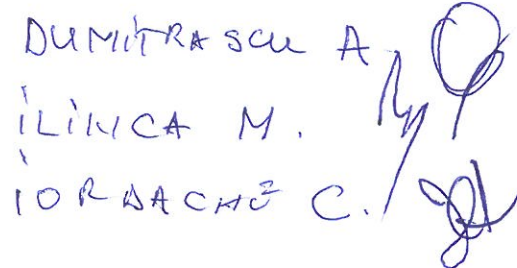 DUMITRASCU A.
ILINCA M.
IORDACHE C.